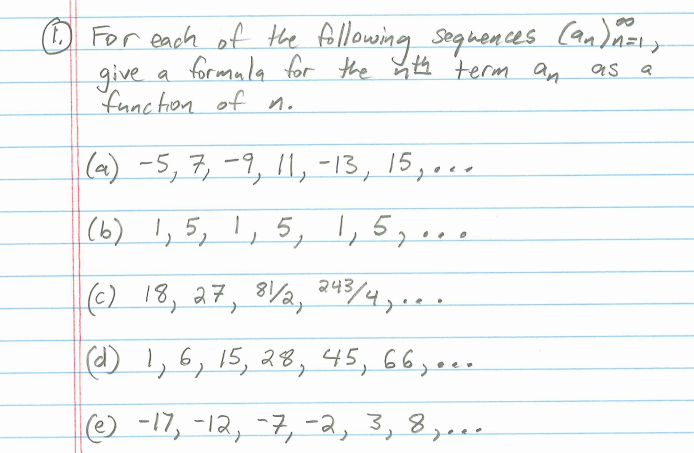 1. For each of the following sequences (aₙ)ₙ₌₁^∞,
give a formula for the nth term aₙ as a
function of n.
(a) -5, 7, -9, 11, -13, 15, ...
(b) 1, 5, 1, 5, 1, 5, ...
(c) 18, 27, 81/2, 243/4, ...
(d) 1, 6, 15, 28, 45, 66, ...
(e) -17, -12, -7, -2, 3, 8, ...